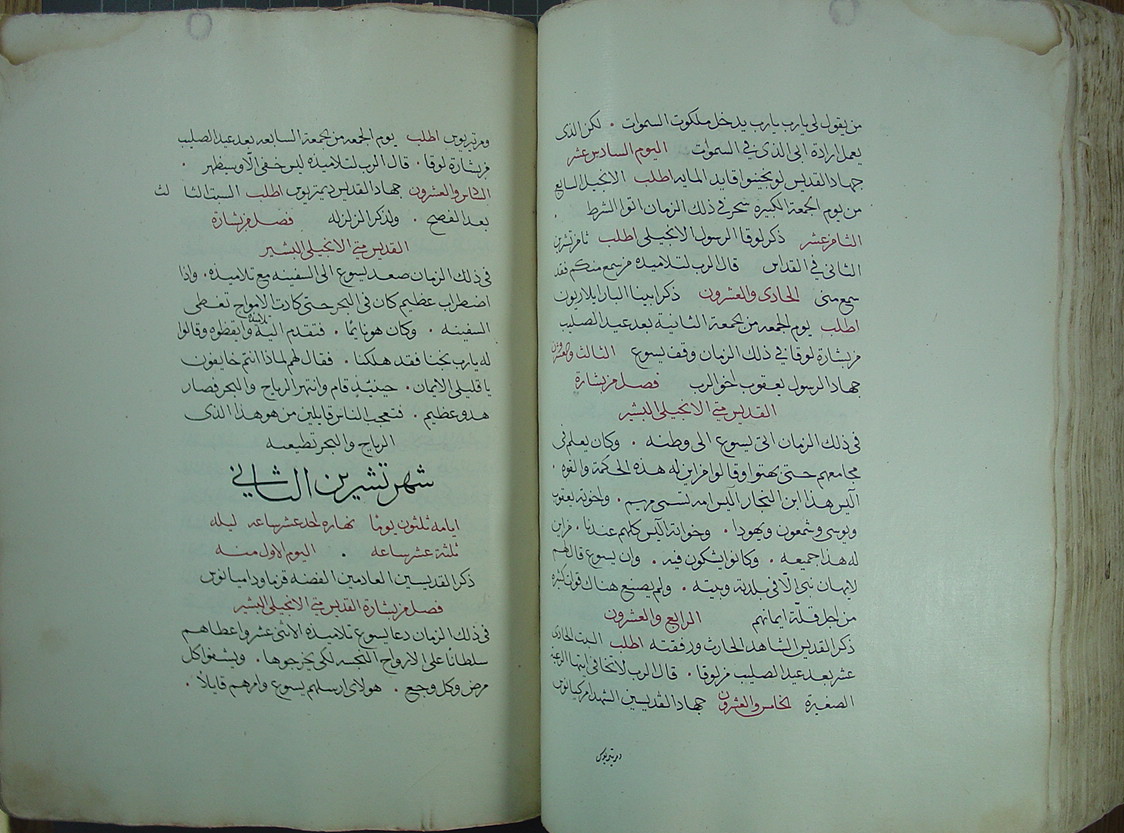 من يقول لي يارب يارب يدخل ملكوت السموات . لكن الذى
يعمل ارادة ابي الذى في السموات اليوم السادس عشر
جهاد القديس لونجينوا قايد المايه اطلب الانجيل السابع
من يوم الجمعة الكبيره سحر في ذلك الزمان اتوا الشرط .
الثامن عشر ذكر لوقا الرسول الانجيلي اطلب ثامن تشرين
الثاني في القداس قال الرب لتلاميذه من سمع منكم فقد
سمع مني الحادى والعشرون ذكر ابينا البار ايلاريون
اطلب يوم الجمعه من الجمعة الثانية بعد عيد الصليب
من بشارة لوقا في ذلك الزمان وقف يسوع الثالث والعشرون
جهاد الرسول يعقوب اخو الرب فصل من بشارة
القديس متى الانجيلي البشير
في ذلك الزمان اتى يسوع الى وطنه . وكان يعلم في
مجامعهم حتى بهتوا وقالوا من اين له هذه الحكمة والقوه .
اليس هذا ابن النجار اليس امه تسمى مريم . واخوته يعقوب
ويوسى وشمعون ويهودا . وخواته اليس كلهم عندنا . فمن اين
له هذا جميعه . وكانوا يشكون فيه . وان يسوع قال لهم
لا يهان نبي الّا في بلدته وبيته . ولم يصنع هناك قوات كثيره
من اجل قلة ايمانهم الرابع والعشرون
ذكر القديس الشاهد الحارث ورفقته اطلب السبت الحادى
عشر بعد عيد الصليب من لوقا . قال الرب لا تخافي ايتها الرعية
الصغيرة الخامس والعشرون جهاد القديسين الشهدا مركيانوس
ومرتيريوس
ومرتريوس اطلب يوم الجمعه من الجمعة السابعه بعد عيد الصليب
من بشارة لوقا . قال الرب لتلاميذه ليس خفي الّا وسيظهر .
السادس والعشرون جهاد القديس ديمتريوس اطلب السبت الثالث
بعد الفصح . ولذكر الزلزله فصل من بشارة
القديس متى الانجيلي البشير
في ذلك الزمان صعد يسوع الى السفينه مع تلاميذه . واذا
اضطراب عظيم كان في البحر حتى كادت الامواج تغطى
السفينه . وكان هو نايمًا . فتقدم اليه تلاميذه وايقظوه وقالوا
له يارب نجنا فقد هلكنا . فقال لهم لماذا انتم خايفون
يا قليلي الايمان . حينيذٍ قام وانتهر الرياح والبحر فصار
هدو عظيم . فتعجب الناس قايلين من هو هذا الذى
الرياح والبحر تطيعه
شهر تشرين الثاني
ايامه ثلثون يومًا نهاره احد عشر ساعه ليله
ثلثة عشر ساعه . اليوم الاول منه
ذكر القديسين العادمين الفضه قزما ودميانوس
فصل من بشارة القديس متى الانجيلي البشير
في ذلك الزمان دعا يسوع تلاميذه الاثني عشر واعطاهم
سلطانًا على الارواح النجسه لكي يخرجوها . ويشفوا كل
مرض وكل وجع . هولاى ارسلهم يسوع وامرهم قايلاً .